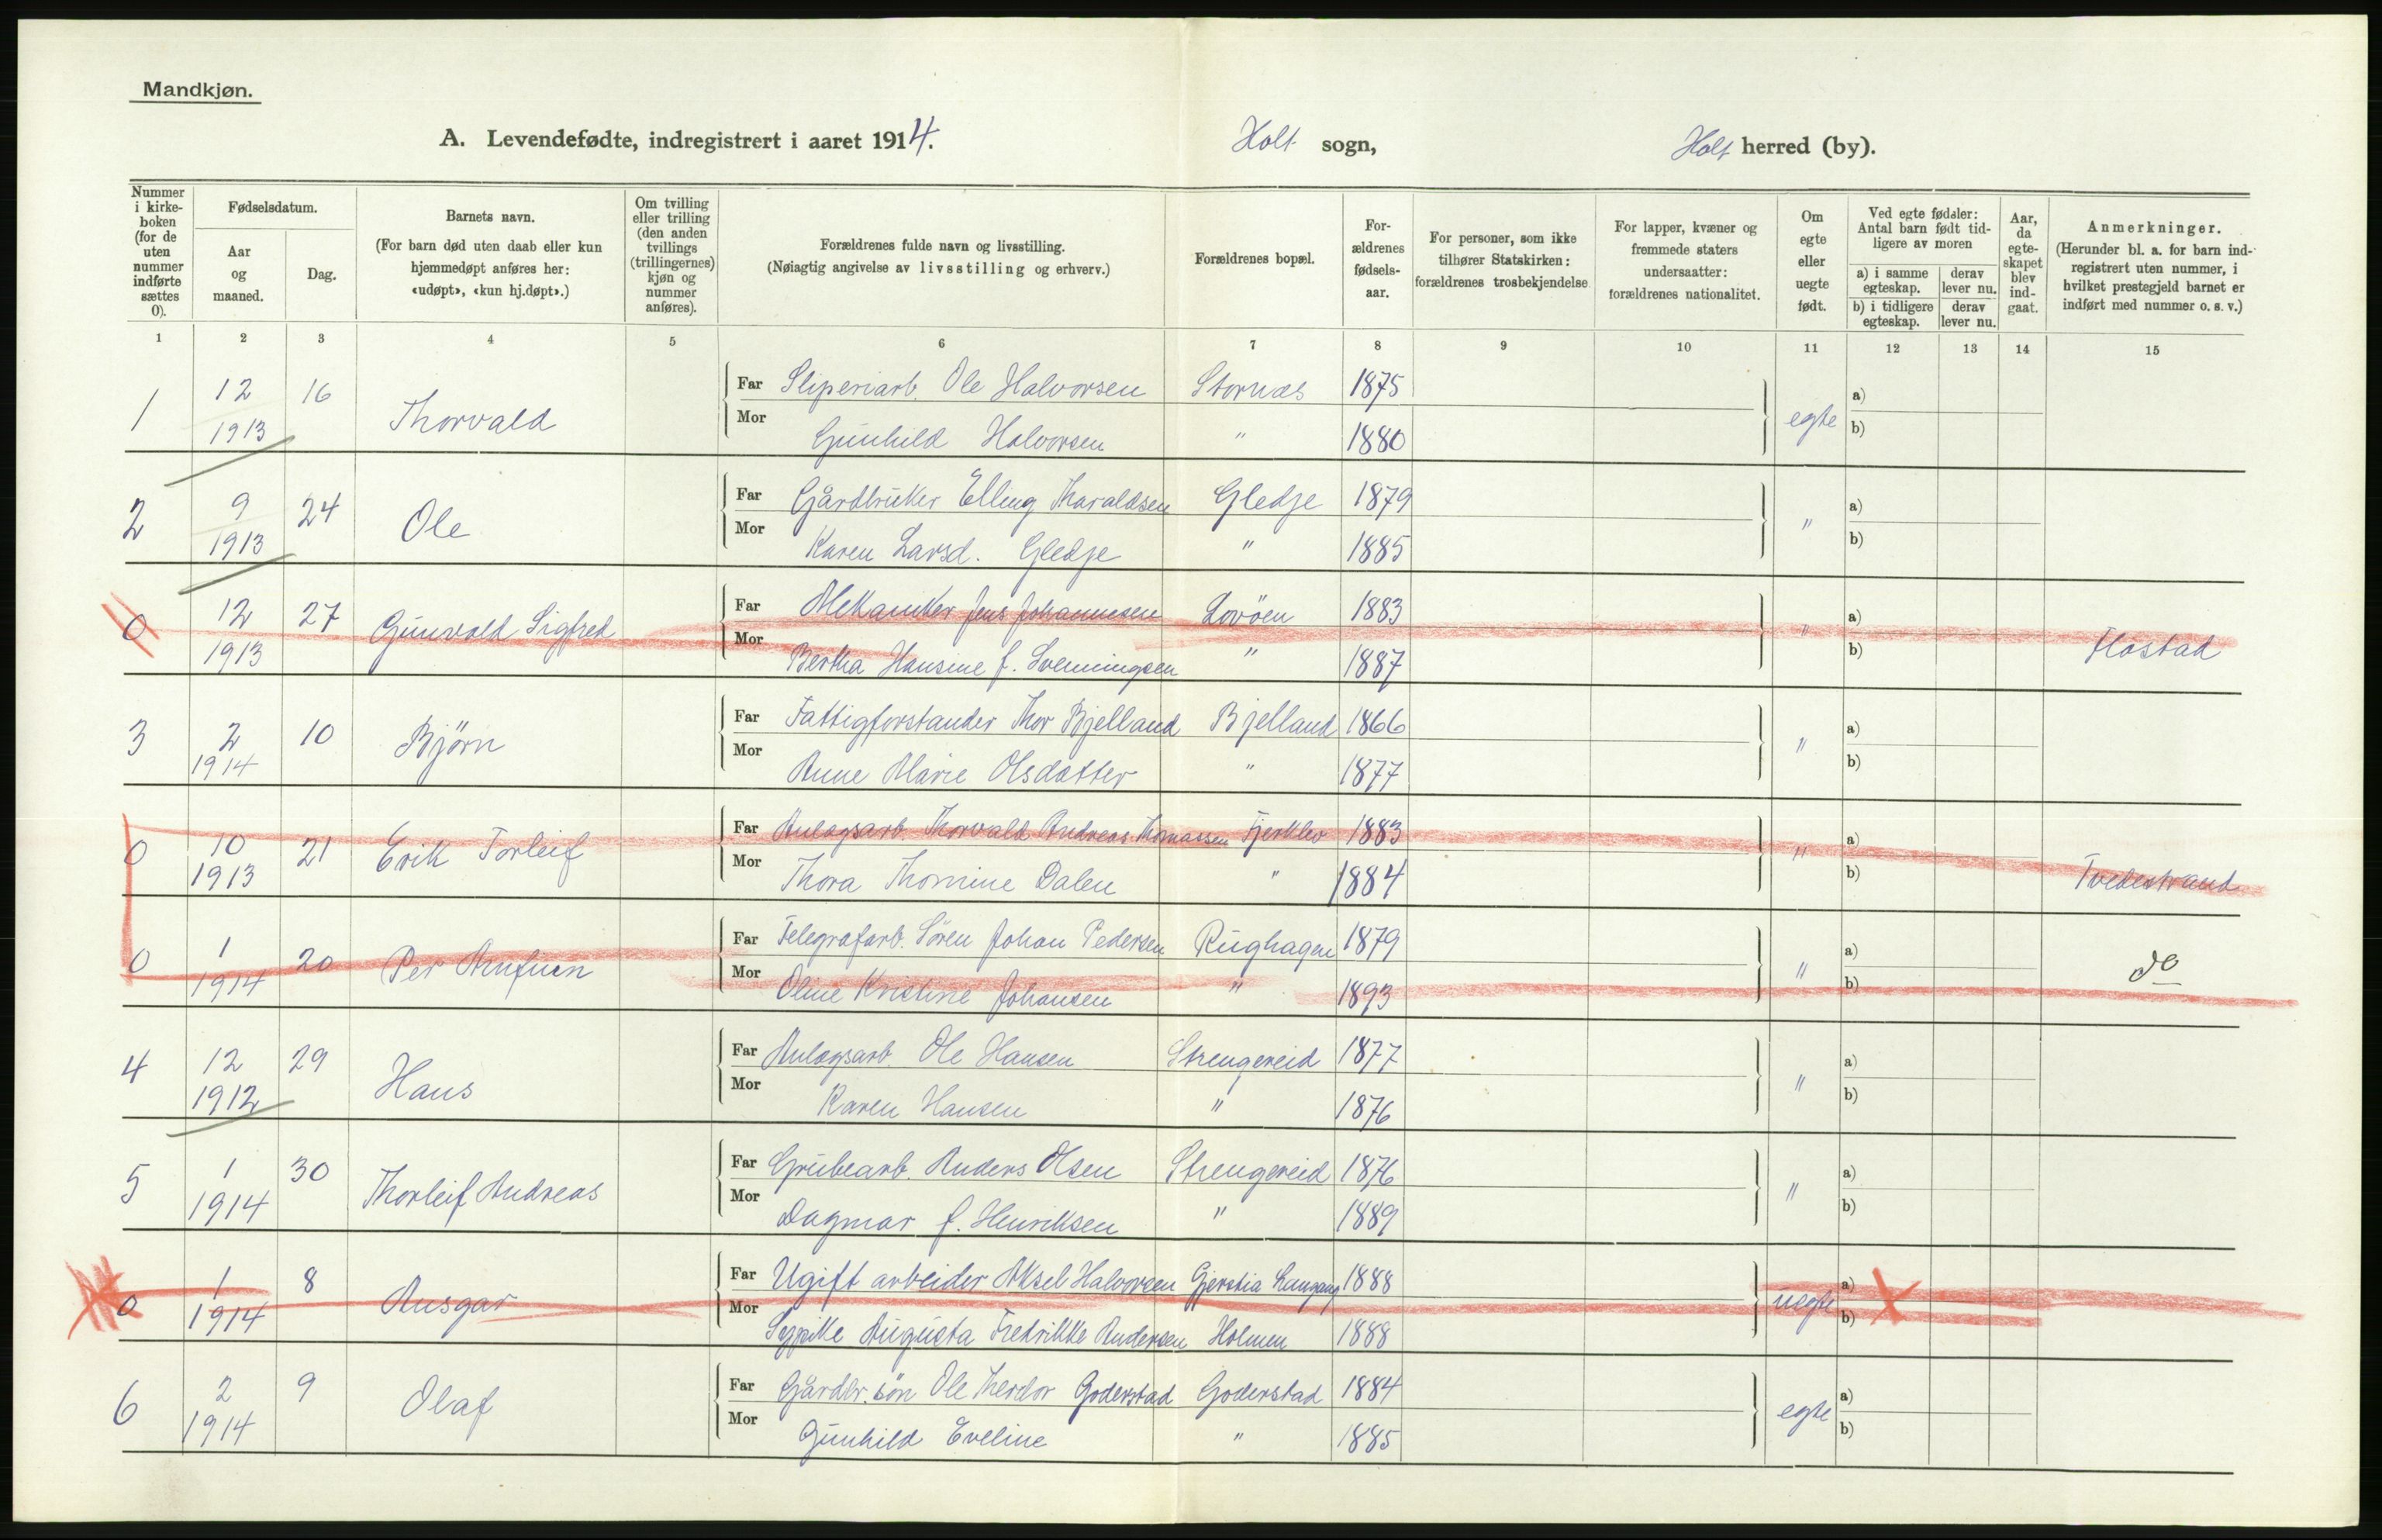 Mandkjøn.
A. Levendefødte, indregistrert i aaret 1914. Holt sogn, Holt herred (by).
Nummer i kirkeboken (for de uten nummer indførte sættes 0).
Fødselsdatum.
Aar og maaned.
Dag.
Barnets navn.
(For barn død uten daab eller kun hjemmedøpt anføres her: «udøpt», «kun hj.døpt».)
Om tvilling eller trilling (den anden tvillings (trillingernes) kjøn og nummer anføres).
Forældrenes fulde navn og livsstilling.
(Nøiagtig angivelse av livsstilling og erhverv.)
Forældrenes bopæl.
Forældrenes fødselsaar.
For personer, som ikke tilhører Statskirken: forældrenes trosbekjendelse
For lapper, kvæner og fremmede staters undersaatter: forældrenes nationalitet.
Om egte eller uegte født.
Ved egte fødsler: Antal barn født tidligere av moren
a) i samme egteskap. derav lever nu.
b) i tidligere egteskap. derav lever nu.
Aar, da egteskapet blev indgaat.
Anmerkninger.
(Herunder bl. a. for barn indregistrert uten nummer, i hvilket prestegjeld barnet er indført med nummer o. s. v.)
1 2 3 4 5 6 7 8 9 10 11 12 13 14 15
1 12 1913 16 Thorvald Far Sliperiarb. Ole Halvorsen Stornæs 1875 egte a)
Mor Gunhild Halvorsen " 1880 b)
2 9 1913 24 Ole Far Gårdbruker Elling Haraldsen Gledje 1879 " a)
Mor Karen Larsd. Gledje " 1885 b)
0 12 1913 27 Gunvald Sigfred Far Mekaniker Jens Johannesen Lovöen 1883 " a)
Mor Bertha Hansine f. Svenningsen " 1887 b) Flostad
3 2 1914 10 Björn Far Fattigforstander Thor Bjelland Bjelland 1866 " a)
Mor Anne Marie Olsdatter " 1877 b)
0 10 1913 21 Erik Torleif Far Anlagsarb. Thorvald Andreas Thomassen Fjerklev 1883 " a)
Mor Thora Thomine Dalen " 1884 b) Tvedestrand
0 1 1914 20 Per Arnfinn Far Telegrafarb. Sören Johan Pedersen Rughagen 1879 " a)
Mor Oline Kristine Johansen " 1893 b) do
4 12 1912 29 Hans Far Anlagsarb. Ole Hansen Strengereid 1877 " a)
Mor Karen Hansen " 1876 b)
5 1 1914 30 Thorleif Andreas Far Grubearb. Anders Olsen Strengereid 1876 " a)
Mor Dagmar f. Henriksen " 1889 b)
0 1 1914 8 Ansgar Far Ugift arbeider Aksel Halvorsen Gjerstia Langang 1888 uegte a)
Mor Sypike Augusta Fredrikke Andersen Holmen 1888 b)
6 2 1914 9 Olaf Far Gårdbr. sön Ole Goderstad Goderstad 1884 egte a)
Mor Gunhild Eveline " 1885 b)